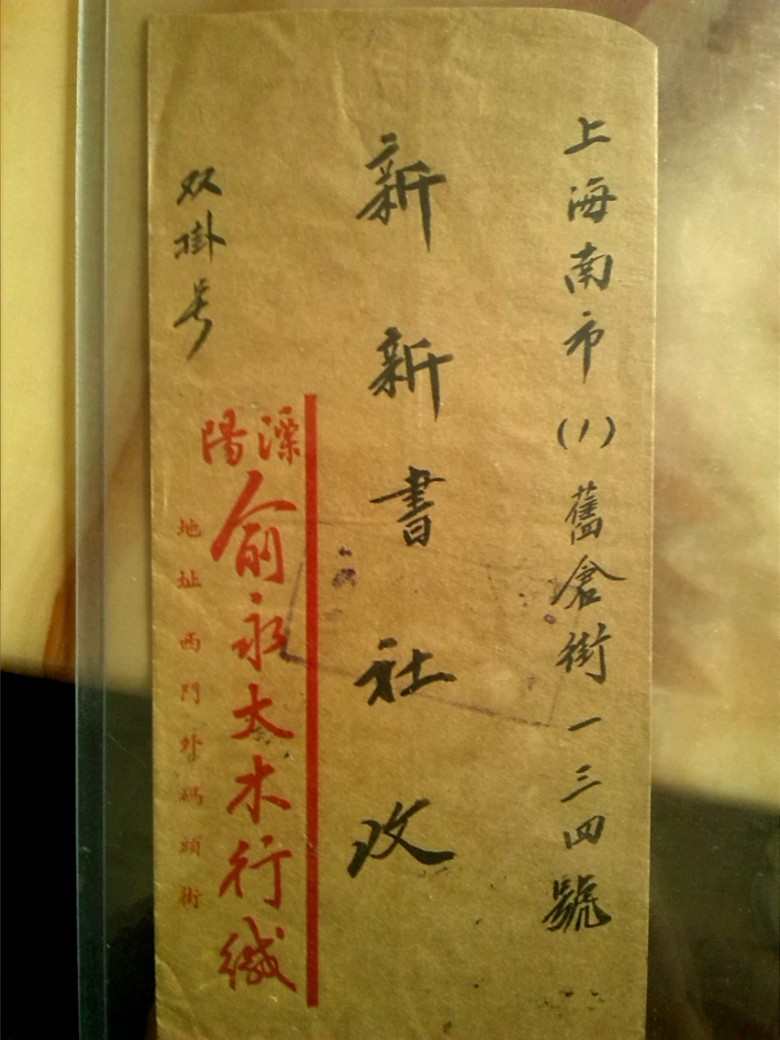 上海南市(1)舊倉街一三四號
新新書社收
双掛号
溧陽
俞永大木行緘
地址西門外碼頭街